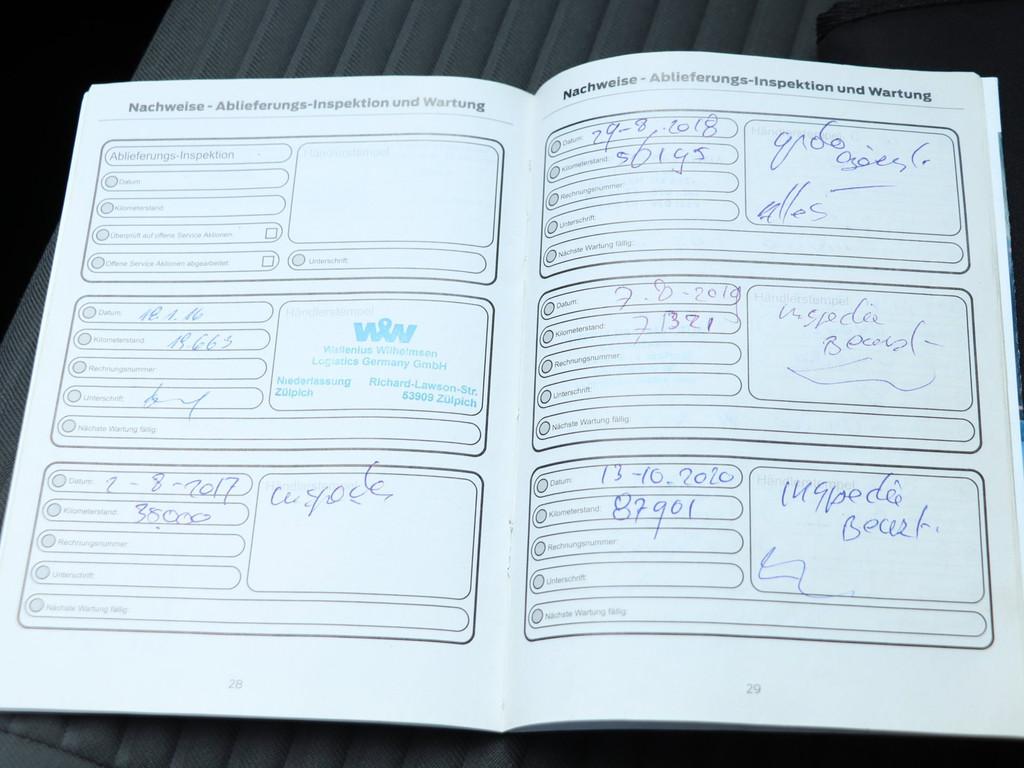 Nachweise - Ablieferungs-Inspektion und Wartung
Ablieferungs-Inspektion
Händlerstempel
Datum:
Kilometerstand:
Überprüft auf offene Service Aktionen:
Offene Service Aktionen abgearbeitet:
Unterschrift:
Datum: 18.1.16
Händlerstempel
Kilometerstand: 19.663
Rechnungsnummer:
Unterschrift:
WW
Wallenius Wilhelmsen
Logistics Germany GmbH
Niederlassung Richard-Lawson-Str.
Zülpich 53909 Zülpich
Nächste Wartung fällig:
Datum: 2-8-2017
Händlerstempel
Kilometerstand: 38000
Rechnungsnummer:
Unterschrift:
Nächste Wartung fällig:
28
Nachweise - Ablieferungs-Inspektion und Wartung
Datum: 29-8-2018
Händlerstempel
Kilometerstand: 56195
Rechnungsnummer:
Unterschrift:
alles
Nächste Wartung fällig:
Datum: 7-8-2019
Händlerstempel
Kilometerstand: 71321
inspectie
Beurt
Rechnungsnummer:
Unterschrift:
Nächste Wartung fällig:
Datum: 13-10-2020
Händlerstempel
Kilometerstand: 87901
inspectie
Beurt.
Rechnungsnummer:
Unterschrift:
Nächste Wartung fällig:
29